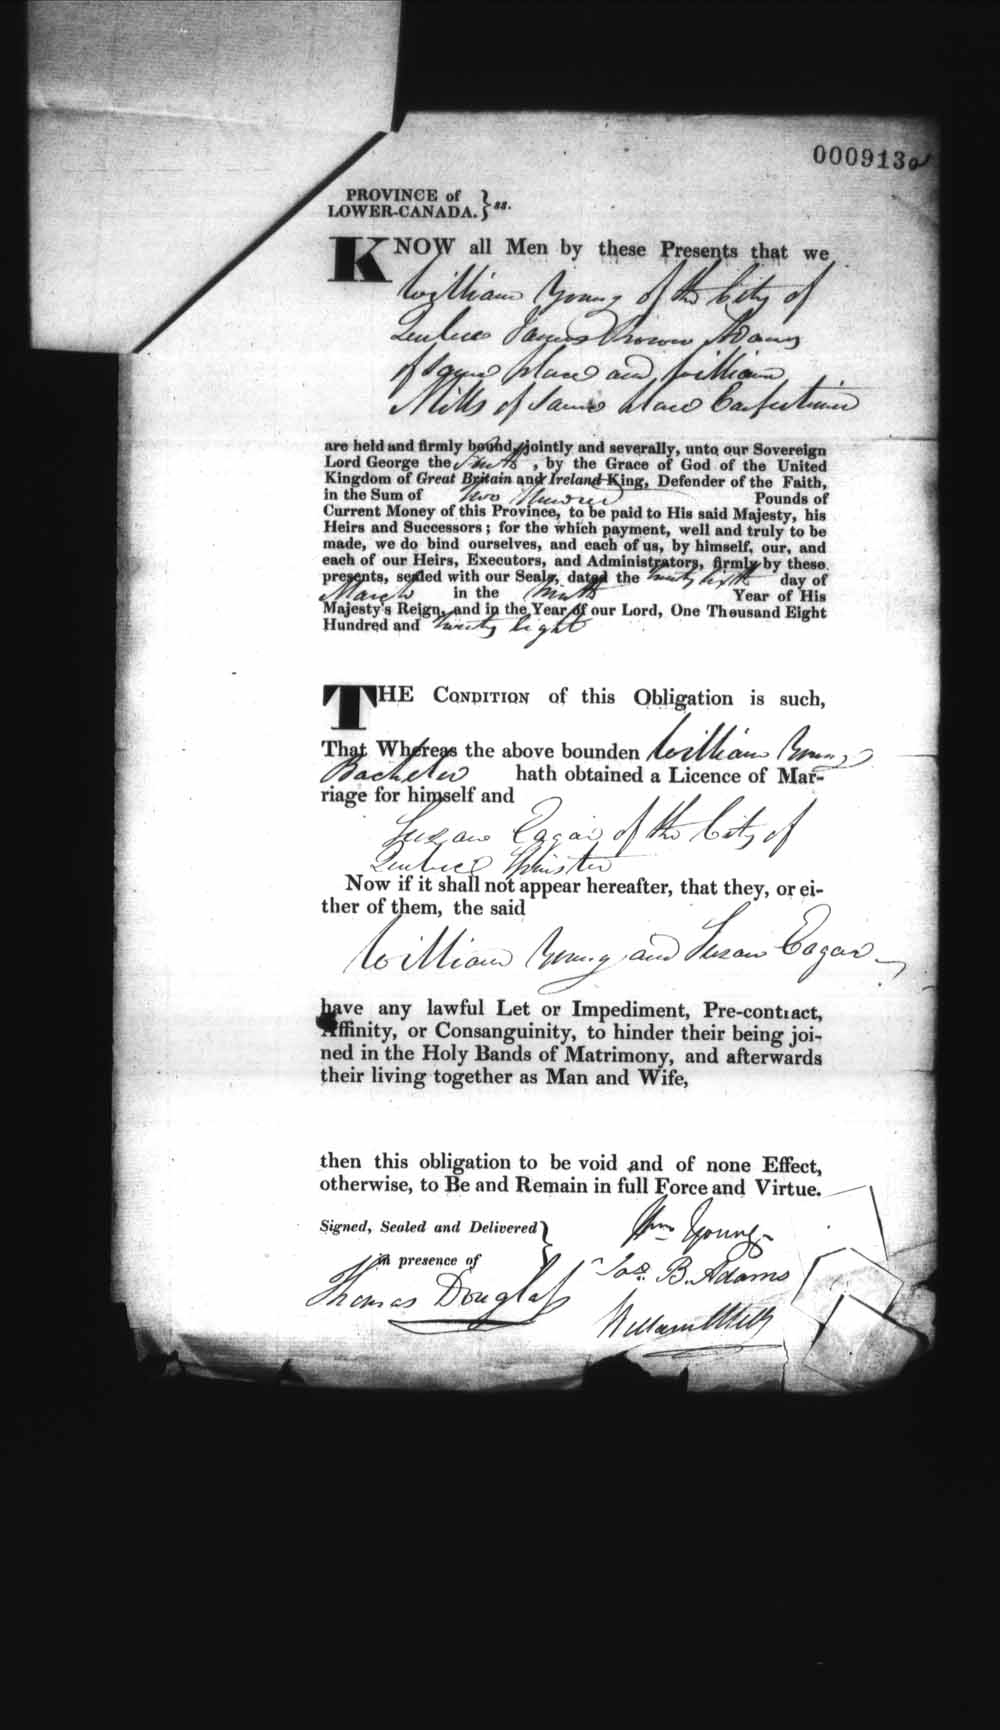 000913a
PROVINCE of
LOWER-CANADA. } ss.
KNOW all Men by these Presents that we
William Young of the City of
Quebec James Brown Adams
of same place and William
Mills of same place Confectioner
are held and firmly bound, jointly and severally, unto our Sovereign
Lord George the Fourth, by the Grace of God of the United
Kingdom of Great Britain and Ireland King, Defender of the Faith,
in the Sum of Two Hundred Pounds of
Current Money of this Province, to be paid to His said Majesty, his
Heirs and Successors; for the which payment, well and truly to be
made, we do bind ourselves, and each of us, by himself, our, and
each of our Heirs, Executors, and Administrators, firmly by these
presents, sealed with our Seals, dated the twenty sixth day of
March in the Ninth Year of His
Majesty's Reign, and in the Year of our Lord, One Thousand Eight
Hundred and twenty Eight
THE CONDITION of this Obligation is such,
That Whereas the above bounden William Young
Bachelor hath obtained a Licence of Mar-
riage for himself and
Susan Eagar of the City of
Quebec Spinster
Now if it shall not appear hereafter, that they, or ei-
ther of them, the said
William Young and Susan Eagar
have any lawful Let or Impediment, Pre-contract,
Affinity, or Consanguinity, to hinder their being joi-
ned in the Holy Bands of Matrimony, and afterwards
their living together as Man and Wife,
then this obligation to be void and of none Effect,
otherwise, to Be and Remain in full Force and Virtue.
Signed, Sealed and Delivered }
in presence of
Thomas Douglass
Wm Young
Jas. B. Adams
William Mills